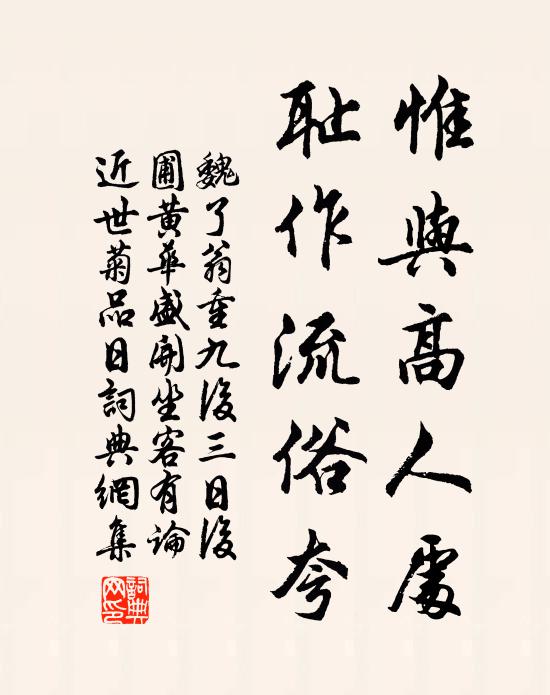 惟與高人處
耻作流俗夸
魏了翁重九後三日後
圃黃華盛開坐客有論
近世菊品日詞典網集
詞典
网印